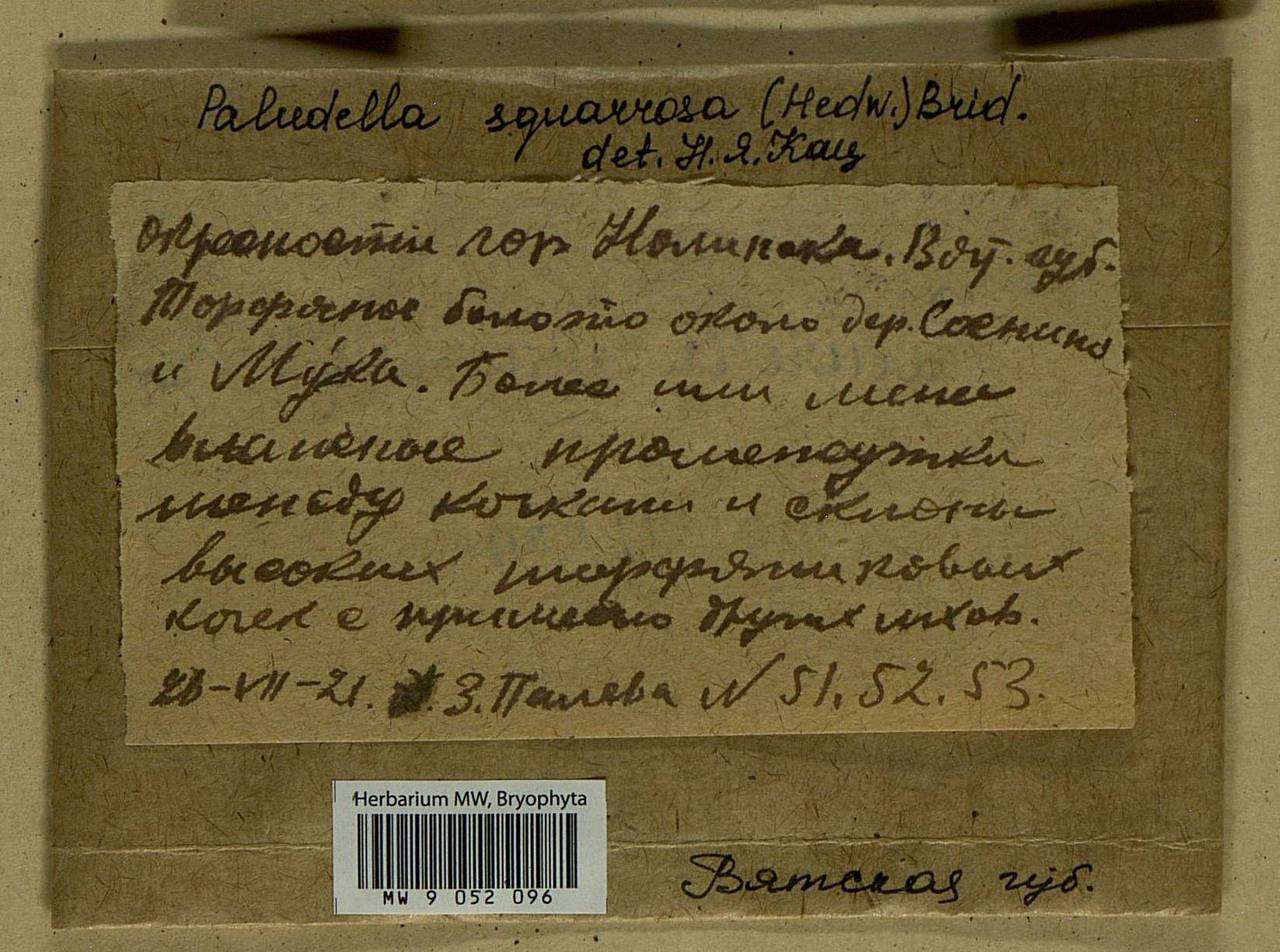 Paludella squarrosa (Hedw.) Brid.
det. Н. Я. Кац
окресности гор Нолинска. Вят. губ.
Торфяное болото около дер. Соснино
и Мука. Более или мене
влажные промежутки
между кочками и склоны
высоких торфяниковых
кочек с примесью других мхов.
26-VII-21. З. N 51. 52. 53.
Herbarium MW, Bryophyta
MW 9 052 096
Вятская губ.